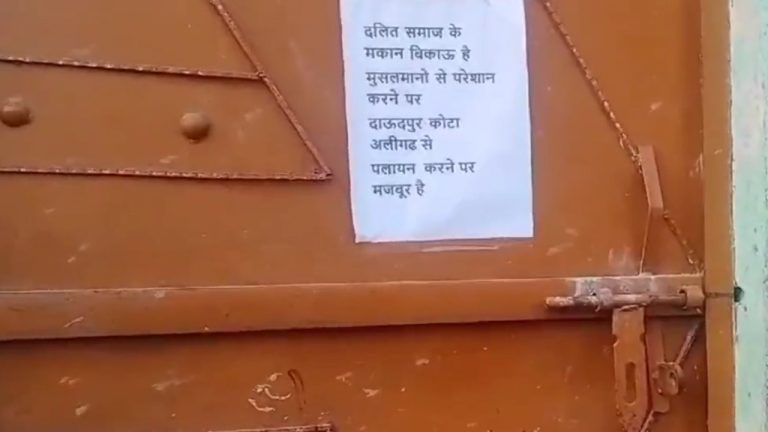 दलित समाज के
मकान बिकाऊ है
मुसलमानो से परेशान
करने पर
दाऊदपुर कोटा
अलीगढ से
पलायन करने पर
मजबूर है